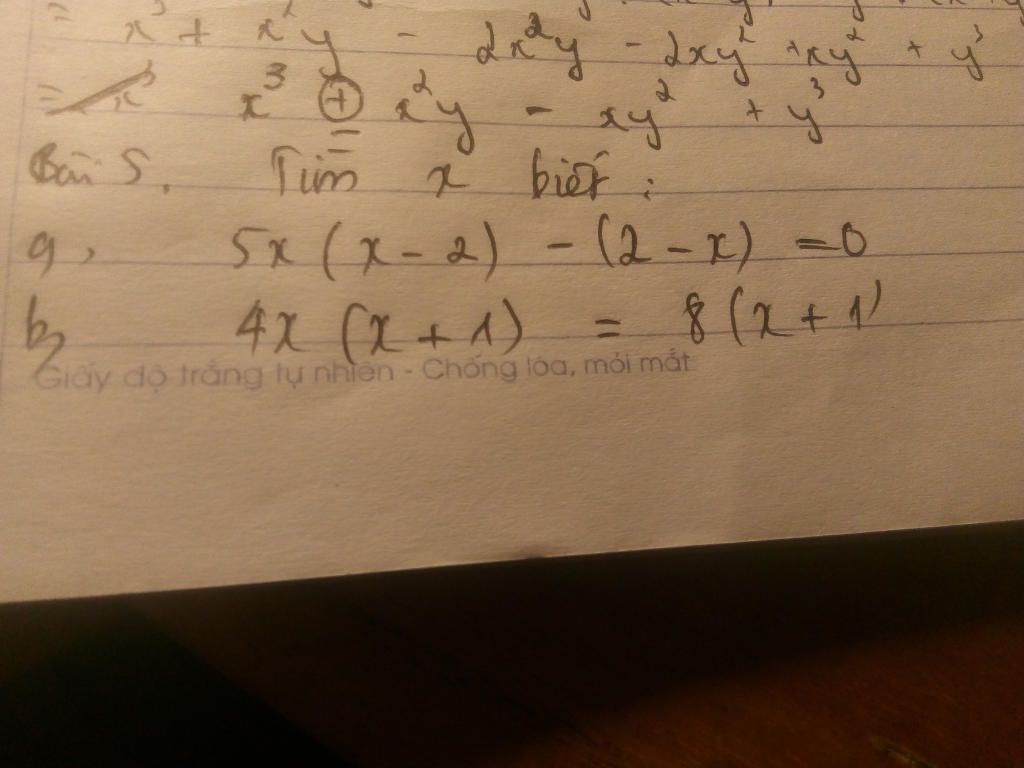 = x³ + x²y - 2x²y - 2xy² + xy² + y³
= x³ x³ + x²y - xy² + y³
Bài 5. Tìm x biết:
a, 5x (x - 2) - (2 - x) = 0
b, 4x (x + 1) = 8 (x + 1)
Giấy độ trắng tự nhiên - Chống lóa, mỏi mắt